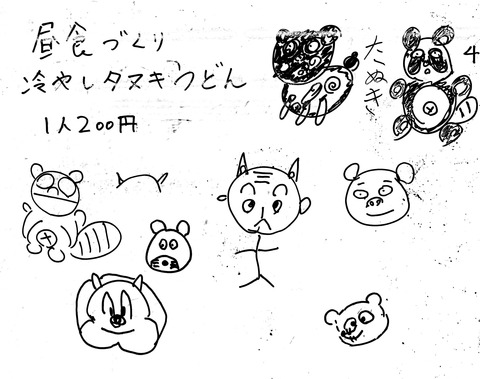 昼食づくり
冷やしタヌキうどん
1人200円
たぬき〜
4